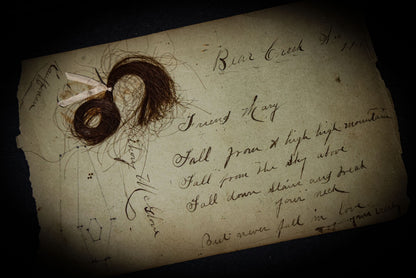 Bear Creek
Friend Mary
Fall from a high high mountain
Fall from the sky above
Fall down stairs and break
your neck
But never fall in love
Mary